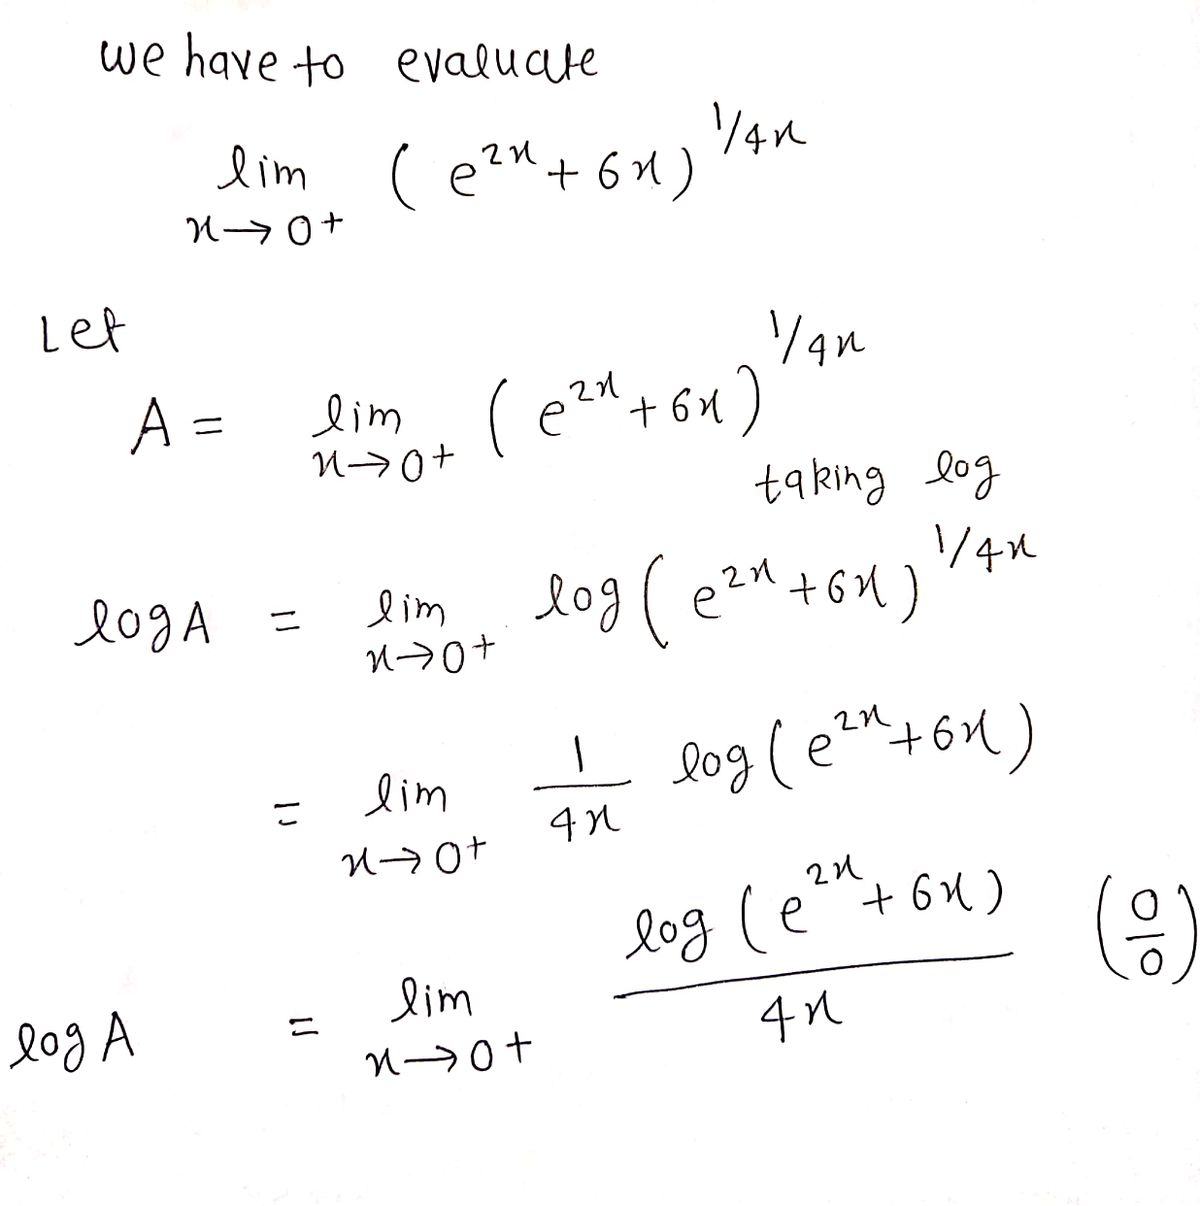 we have to evaluate
lim ( e^{2x} + 6x )^{1/4x}
x→0+
Let
A = lim ( e^{2x} + 6x )^{1/4x}
x→0+
taking log
log A = lim log ( e^{2x} + 6x )^{1/4x}
x→0+
= lim 1/4x log ( e^{2x} + 6x )
x→0+
log A = lim log ( e^{2x} + 6x ) / 4x (0/0)
x→0+